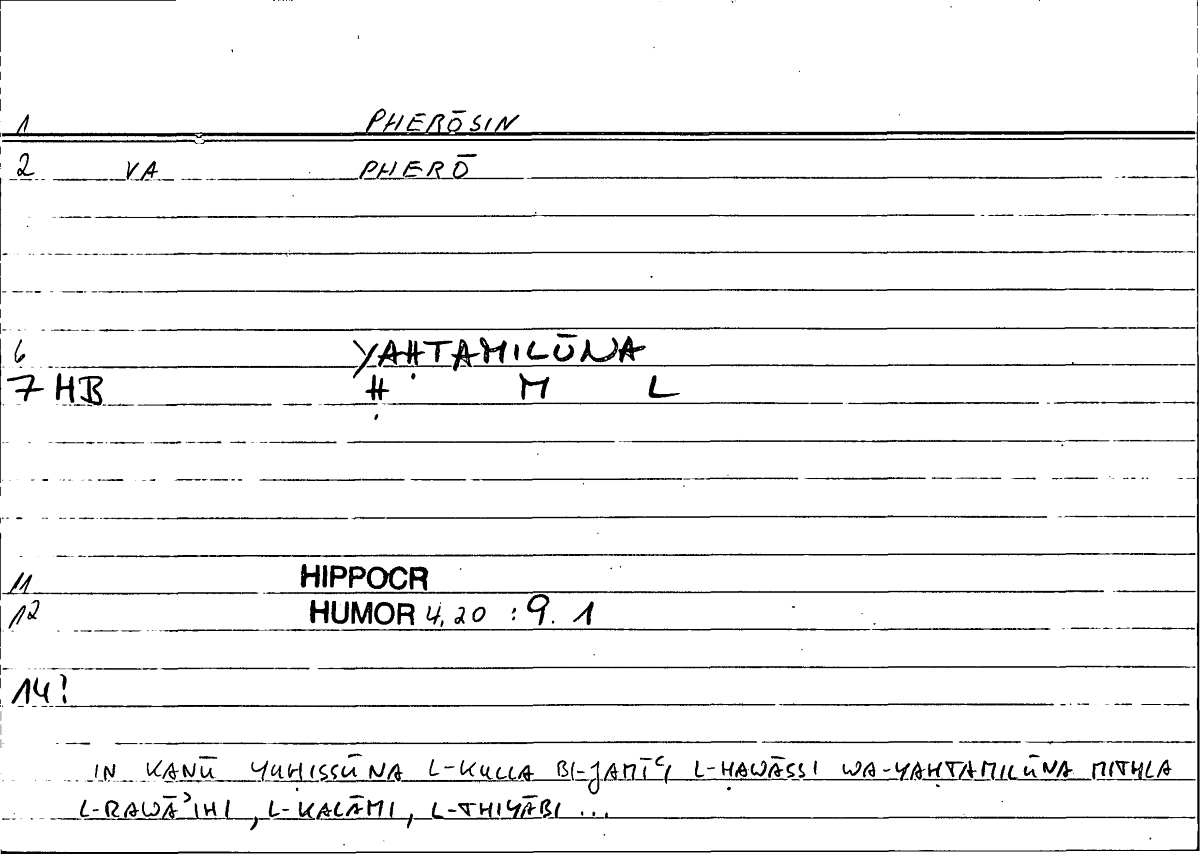 1 PHERŌSIN
2 VA PHERŌ
6 YAḤTAMILŪNA
7 HB Ḥ M L
11 HIPPOCR
12 HUMOR 4,20 : 9. 1
14?
IN KANŪ YUḤISSŪNA L-KULLA BI-JAMĪʿI L-ḤAWĀSSI WA-YAḤTAMILŪNA MITHLA
L-RAWĀʾIHI, L-KALĀMI, L-THIYĀBI ...